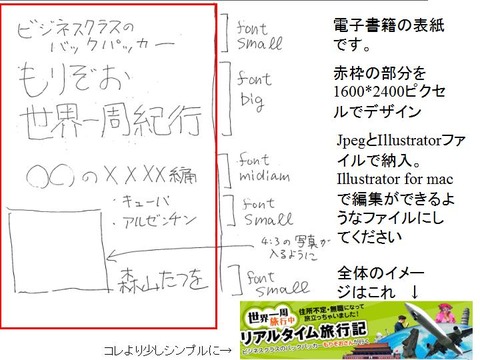 ビジネスクラスの
バックパッカー
もりぞお
世界一周紀行
〇〇のXXXX編
・キューバ
・アルゼンチン
森山たつを
font
small
font
big
font
midiam
font
small
4:3の写真が
入るように
font
small
電子書籍の表紙
です。
赤枠の部分を
1600*2400ピクセ
ルでデザイン
JpegとIllustratorファ
イルで納入。
Illustrator for mac
で編集ができるよ
うなファイルにし
てください
全体のイメー
ジはこれ ↓
世界一周
旅行中
住所不定・無職になって
旅立っちゃいました!
リアルタイム旅行記
ビジネスクラスのバックパッカーもりぞおが行く
コレより少しシンプルに→